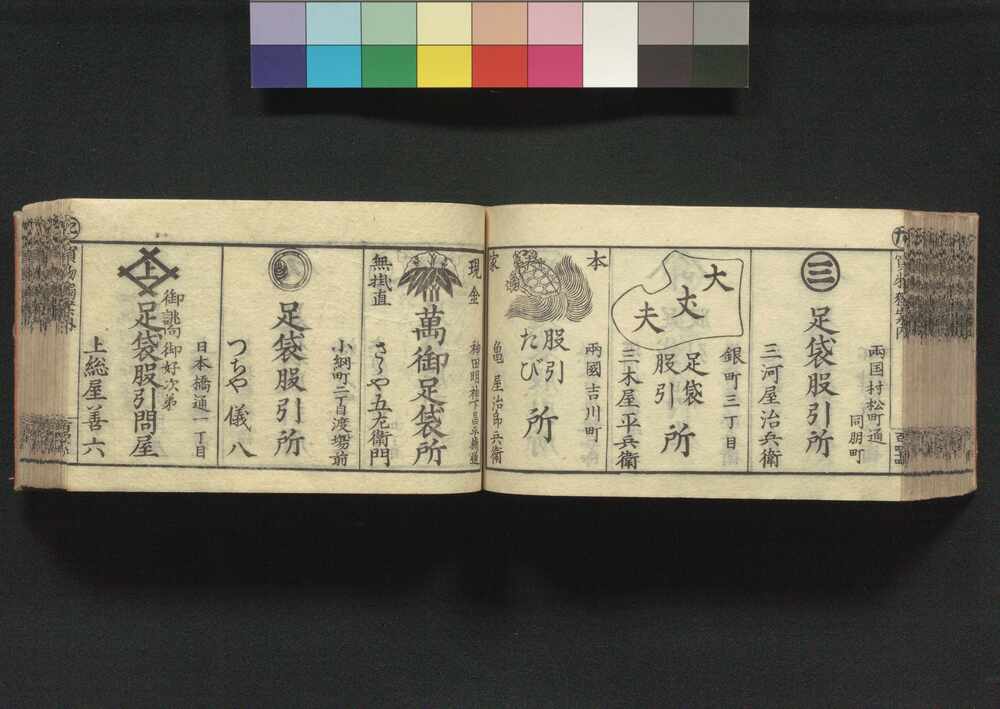 両国村松町通
同朋町
三
足袋股引所
三河屋治兵衛
銀町三丁目
大丈夫
足袋
股引
所
三木屋平兵衛
本家
兩國吉川町
股引
たび
所
亀屋治郎兵衛
現金
無掛直
萬御足袋所
さゝや五左衛門
小網町二丁目渡場前
足袋股引所
つちや儀八
日本橋通一丁目
御誂向御好次第
上
足袋股引問屋
上総屋善六